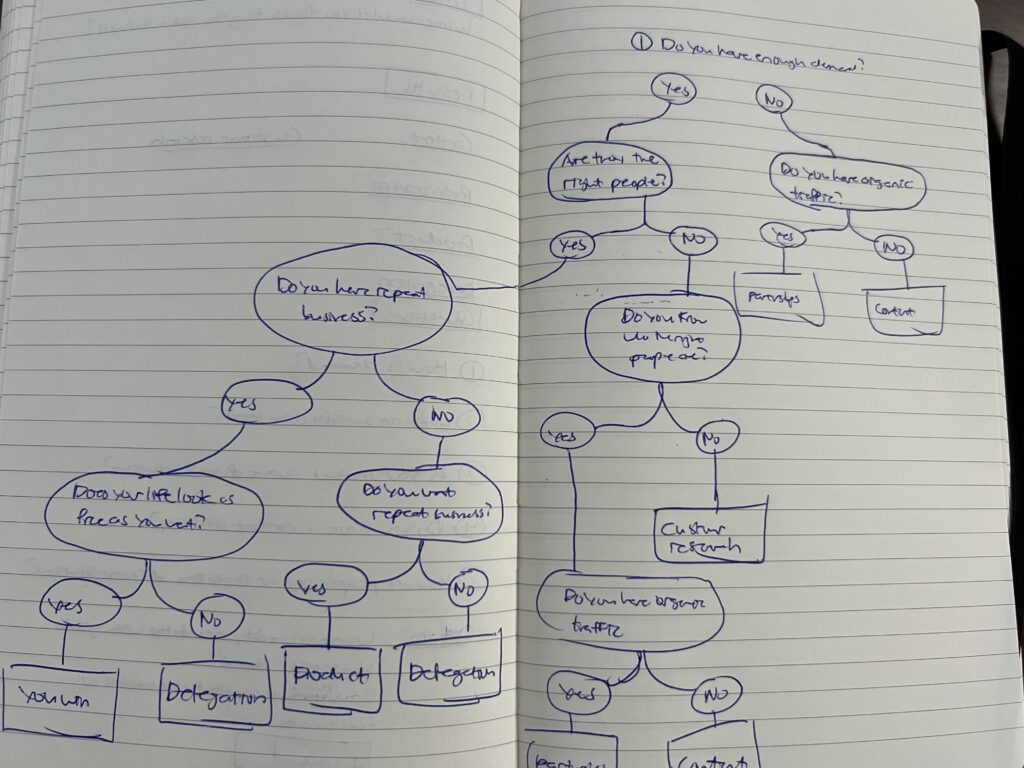 ① Do you have enough demand?
Yes
No
Are they the
right people?
Do you have organic
traffic?
Yes
No
Yes
No
Partnerships
Content
Do you have repeat
business?
Do you know
who the right
people are?
Yes
No
Yes
No
Does your life look as
free as you want?
Do you want
repeat business?
Customer
research
Yes
No
Yes
No
Do you have organic
traffic
You win
Delegation
Product
Delegation
Yes
No
Content